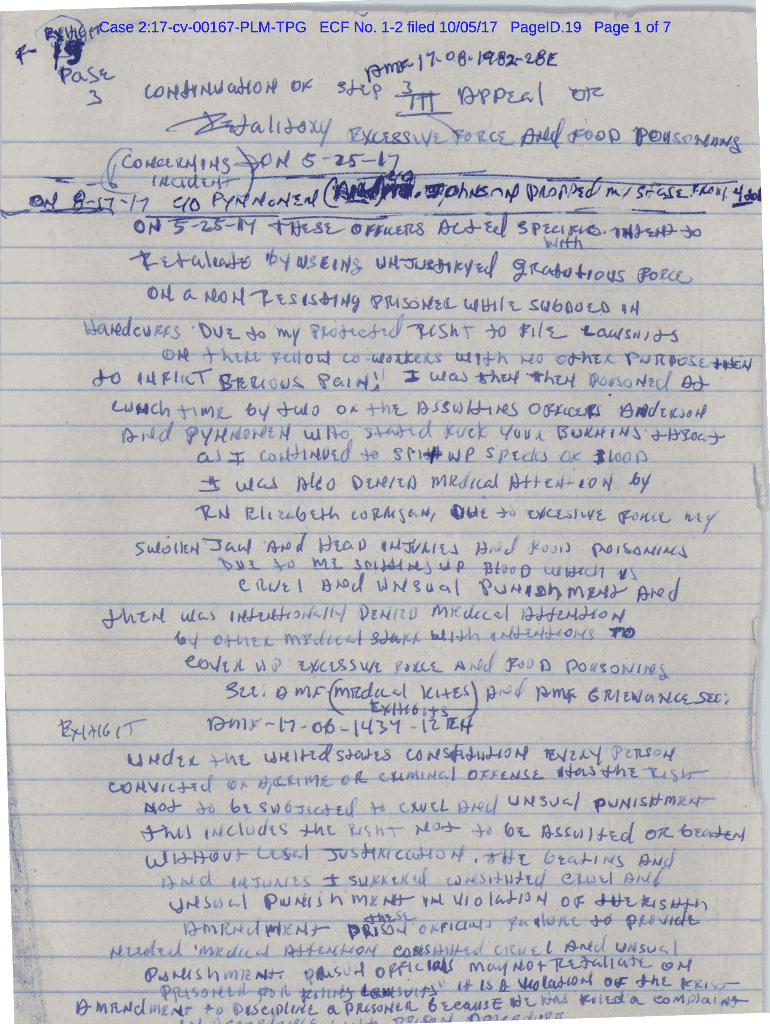 Case 2:17-cv-00167-PLM-TPG ECF No. 1-2 filed 10/05/17 PageID.19 Page 1 of 7
EXHIBIT
F- 19
PaSE
3
AMF-17-08-1982-28E
CONTINUATION OF STEP 3 III APPEAl OF
RetaliToxy EXCESSIVE FORCE And FOOD POUSONNING
(CONCERNING INCIDENT) ON 5-25-17
ON 8-17-17 C/O PYNNONEN C/O JOHNSON DROPPED my STAGE FROM 4 to
ON 5-25-17 THESE OFFICERS ACTED SPECIFIC INTENT TO
with
RETALIATE by USEING UNJUSTIFYED GRATUTIOUS FORCE
ON a NON RESISTING PRISONER WHILE SUBDUED IN
HANDCUFFS DUE to my PROTECTED RIGHT to FILE LAWSUITS
ON THERE FELLOW CO-WORKERS WITH NO OTHER PURPOSE THEN
to INFLICT SERIOUS PAIN! I was then then POISONED AT
LUNCH TIME by two OF the ASSULTING OFFICERS ANDERSON
AND PYNNONEN WHO STATED FUCK YOUR BURNING THROAT
as I CONTINUED to SPIT UP SPECKS OF BLOOD
I was Also DENIED MEDICAL ATTENTION by
RN ElizabEth CORRIGAN, DUE to EXCESSIVE FORCE my
SWOLLEN JAW AND HEAD INJURIES And FOOD POISONING
DUE to ME SPITTING UP BLOOD WHICH IS
CRUEl AND UNSUAL PUNISHMENT AND
then was INTENTIONALLY DENIED MEDICAL ATTENTION
by OTHER MEDICAL STAFF WITH INTENTIONS TO
COVER UP EXCESSIVE FORCE AND FOOD POUSONING
SEE: AMF (MEDICAL KITES) AND AMF GRIEVANCE SEE:
EXHIBITS
EXHIBIT AMF-17-06-1437-12
UNDER the UNITED STATES CONSTITUTION EVERY PERSON
CONVICTED OF A CRIME OR CRIMINAL OFFENSE HAS THE RIGHT
NOT to bE SUBJECTED to CRUEL AND UNSUAL PUNISHMENT
this INCLUDES the RIGHT NOT to BE ASSULTED OR BEATEN
WITHOUT LEGAL JUSTIFICATION. THE BEATING AND
AND INJURIES I SUFFERED CONSTITUTED CRUEL AND
UNSUAL PUNISHMENT IN VIOLATION OF THE EIGHTH
AMENDMENT these PRISON OFFICIALS FAILURE to PROVIDE
NEEDED MEDICAL ATTENTION CONSTITUTED CRUEL AND UNSUAL
PUNISHMENT PRISON OFFICIALS MAY NOT RETALIATE ON
PRISONER FOR FILING LAWSUITS" It IS A VIOLATION OF the FRIST
AMENDMENT to DISCIPLINE a PRISONER BECAUSE HE HAS FILED a COMPLAINT